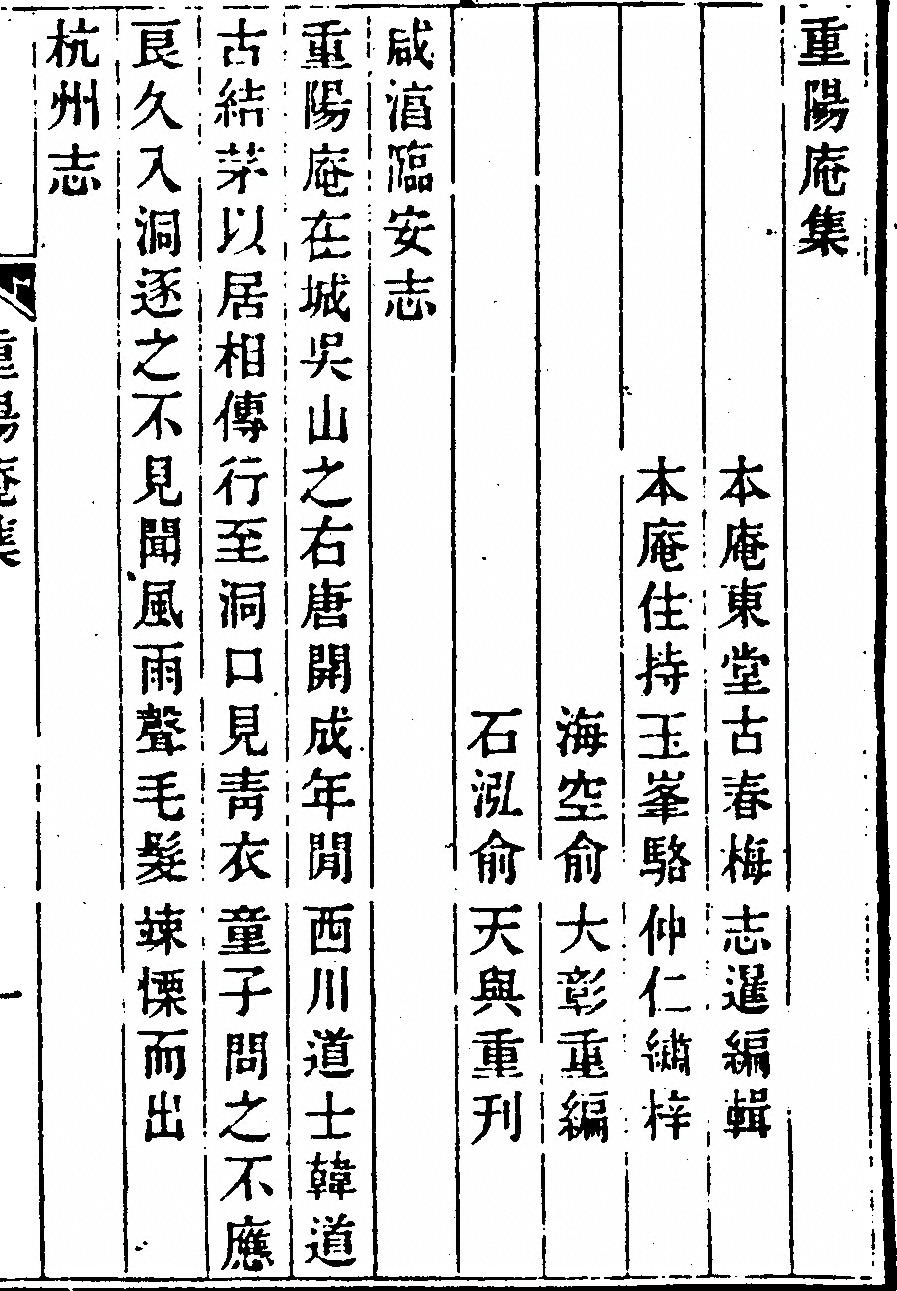 重陽庵集
本庵東堂古春梅志暹編輯
本庵住持玉峯駱仲仁繡梓
海空俞大彰重編
石泓俞天與重刊
咸湻臨安志
重陽庵在城吳山之右唐開成年閒西川道士韓道
古結茅以居相傳行至洞口見靑衣童子問之不應
良久入洞逐之不見聞風雨聲毛髮竦慄而出
杭州志
重陽庵集
一